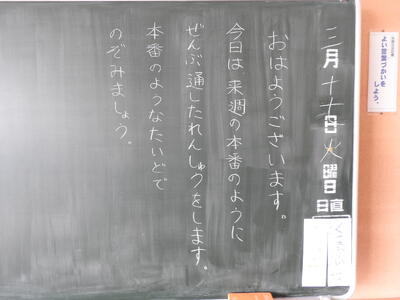 三月十七日火曜日
日直
おはようございます。
今日は来週の本番のように
ぜんぶ通したれんしゅうをします。
本番のようなたいどで
のぞみましょう。
よい言葉づかいを
しよう。